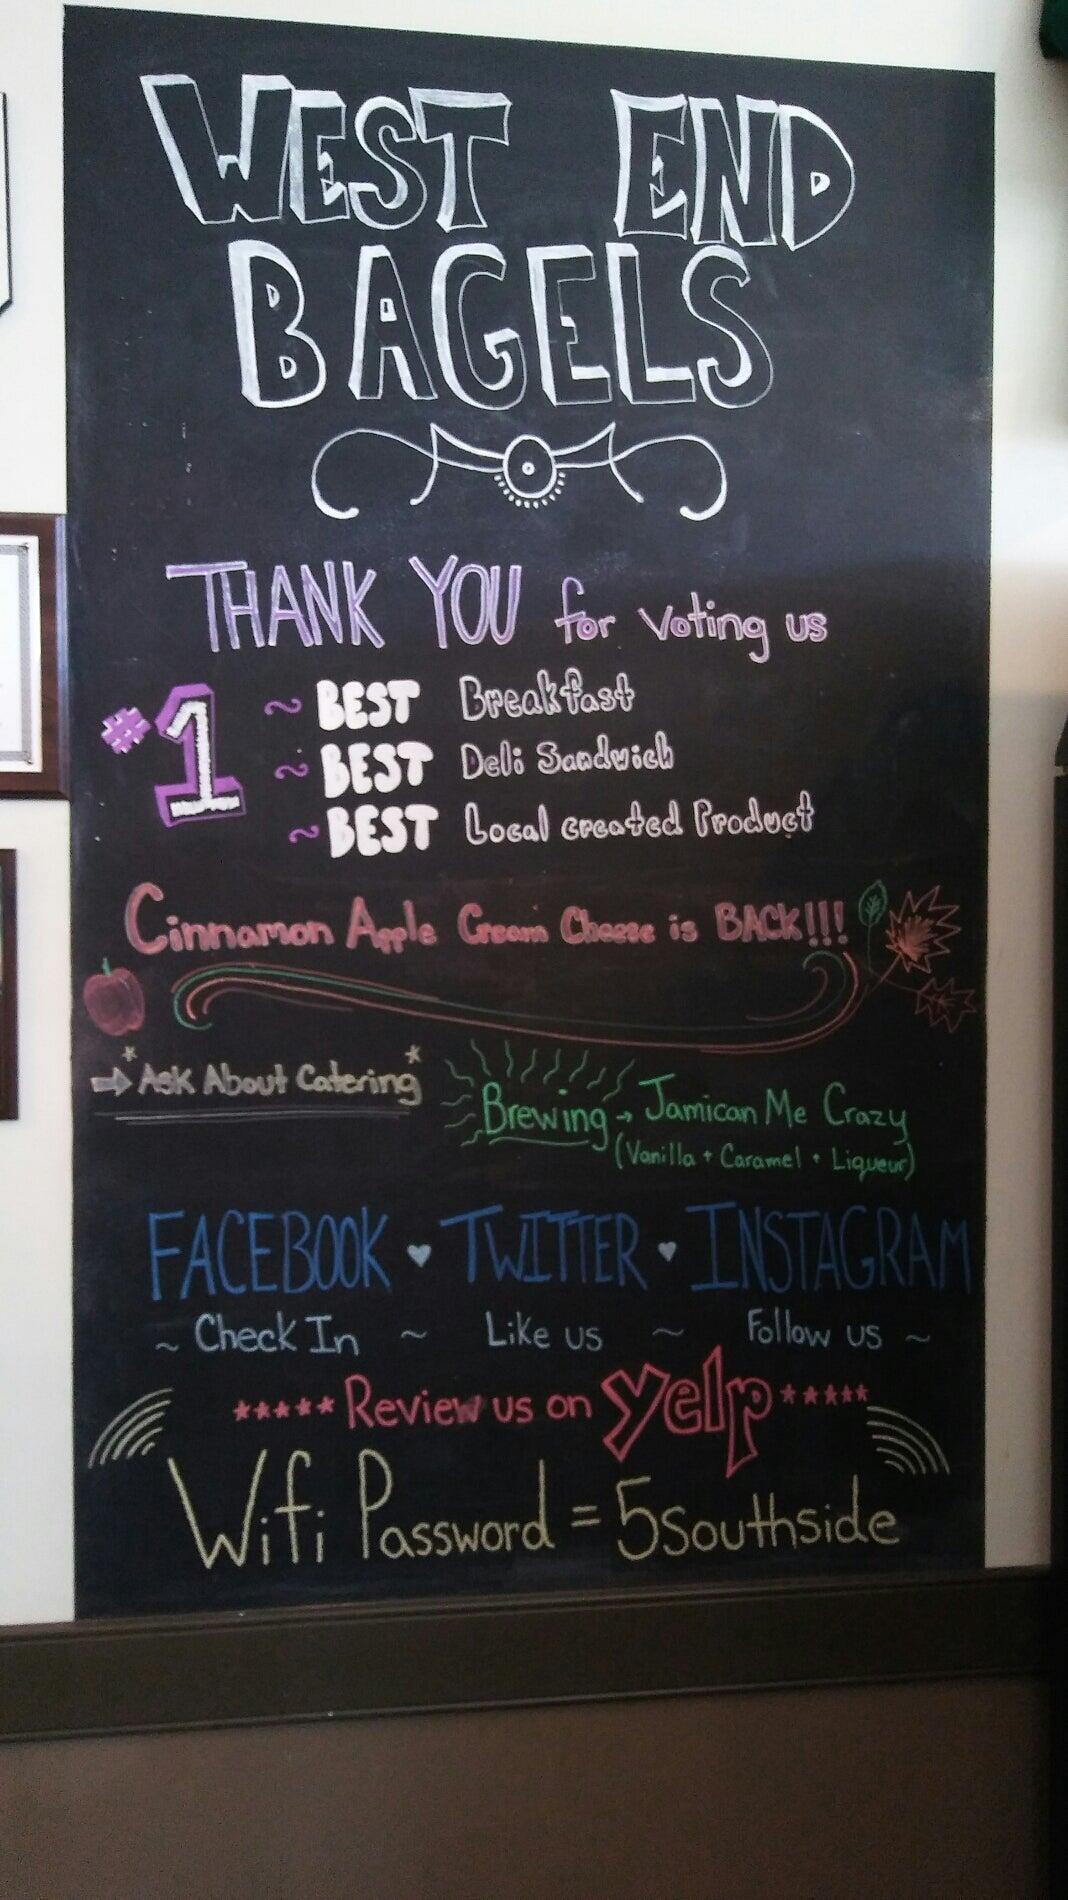 WEST END
BAGELS
THANK YOU for voting us
#1 ~ BEST Breakfast
~ BEST Deli Sandwich
~ BEST Local created Product
Cinnamon Apple Cream Cheese is BACK!!!
Ask About Catering
Brewing → Jamican Me Crazy
(Vanilla + Caramel + Liqueur)
FACEBOOK ♥ TWITTER ♥ INSTAGRAM
~ Check In ~ Like us ~ Follow us ~
***** Review us on yelp *****
Wifi Password = 5southside